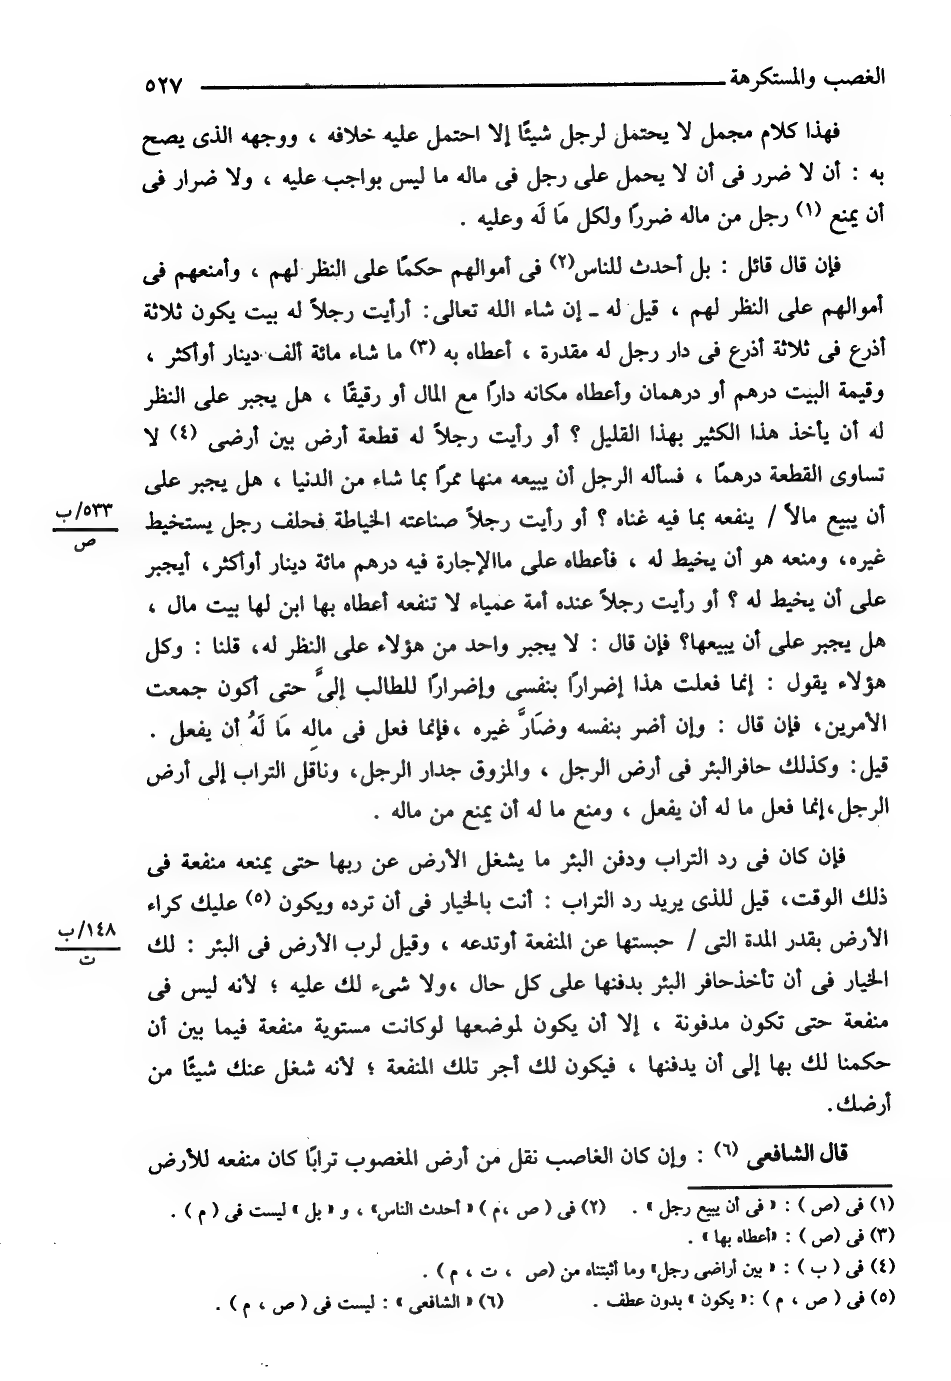 الغصب والمستكرهة ٥٢٧
فهذا كلام مجمل لا يحتمل لرجل شيئًا إلا احتمل عليه خلافه ، ووجهه الذى يصح
به : أن لا ضرر فى أن لا يحمل على رجل فى ماله ما ليس بواجب عليه ، ولا ضرار فى
أن يمنع (١) رجل من ماله ضررًا ولكل مَا لَه وعليه .
فإن قال قائل : بل أحدث للناس(٢) فى أموالهم حكمًا على النظر لهم ، وأمنعهم فى
أموالهم على النظر لهم ، قيل له ـ إن شاء الله تعالى: أرأيت رجلاً له بيت يكون ثلاثة
أذرع فى ثلاثة أذرع فى دار رجل له مقدرة ، أعطاه به (٣) ما شاء مائة ألف دينار أوأكثر ،
وقيمة البيت درهم أو درهمان وأعطاه مكانه دارًا مع المال أو رقيقًا ، هل يجبر على النظر
له أن يأخذ هذا الكثير بهذا القليل ؟ أو رأيت رجلاً له قطعة أرض بين أرضى (٤) لا
تساوى القطعة درهمًا ، فسأله الرجل أن يبيعه منها ممرًا بما شاء من الدنيا ، هل يجبر على
أن يبيع مالاً / ينفعه بما فيه غناه ؟ أو رأيت رجلاً صناعته الخياطة فحلف رجل يستخيط
٥٣٣/ب
ص
غيره، ومنعه هو أن يخيط له ، فأعطاه على ماالإجارة فيه درهم مائة دينار أوأكثر، أيجبر
على أن يخيط له ؟ أو رأيت رجلاً عنده أمة عمياء لا تنفعه أعطاه بها ابن لها بيت مال ،
هل يجبر على أن يبيعها؟ فإن قال : لا يجبر واحد من هؤلاء على النظر له، قلنا : وكل
هؤلاء يقول : إنما فعلت هذا إضرارًا بنفسى وإضرارًا للطالب إلىَّ حتى أكون جمعت
الأمرين، فإن قال : وإن أضر بنفسه وضَارَّ غيره ،فإنما فعل فى مالِه مَا لَهُ أن يفعل .
قيل: وكذلك حافرالبئر فى أرض الرجل ، والمزوق جدار الرجل، وناقل التراب إلى أرض
الرجل،إنما فعل ما له أن يفعل ، ومنع ما له أن يمنع من ماله .
فإن كان فى رد التراب ودفن البئر ما يشغل الأرض عن ربها حتى يمنعه منفعة فى
ذلك الوقت، قيل للذى يريد رد التراب : أنت بالخيار فى أن ترده ويكون (٥) عليك كراء
الأرض بقدر المدة التى / حبستها عن المنفعة أوتدعه ، وقيل لرب الأرض فى البئر : لك
١٤٨/ب
ت
الخيار فى أن تأخذحافر البئر بدفنها على كل حال ،ولا شىء لك عليه ؛ لأنه ليس فى
منفعة حتى تكون مدفونة ، إلا أن يكون لموضعها لوكانت مستوية منفعة فيما بين أن
حكمنا لك بها إلى أن يدفنها ، فيكون لك أجر تلك المنفعة ؛ لأنه شغل عنك شيئًا من
أرضك.
قال الشافعى (٦) : وإن كان الغاصب نقل من أرض المغصوب ترابًا كان منفعه للأرض
(١) فى (ص ) : « فى أن يبيع رجل » . (٢) فى ( ص ،م ) « أحدث الناس» ، و « بل » ليست فى ( م ) .
(٣) فى (ص ) : «أعطاه بها » .
(٤) فى ( ب ) : « بين أراضى رجل» وما أثبتناه من (ص ، ت ، م ) .
(٥) فى ( ص ، م ) :« يكون » بدون عطف . (٦) « الشافعى » : ليست فى ( ص ، م ) .